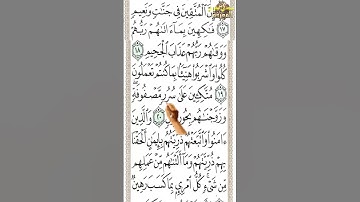 إِنَّ ٱلْمُتَّقِينَ فِى جَنَّٰتٍ وَنَعِيمٍ
١٧ فَٰكِهِينَ بِمَآ ءَاتَىٰهُمْ رَبُّهُمْ
وَوَقَىٰهُمْ رَبُّهُمْ عَذَابَ ٱلْجَحِيمِ ١٨
كُلُوا۟ وَٱشْرَبُوا۟ هَنِيٓـًٔۢا بِمَا كُنتُمْ تَعْمَلُونَ
١٩ مُتَّكِـِٔينَ عَلَىٰ سُرُرٍ مَّصْفُوفَةٍ
وَزَوَّجْنَٰهُم بِحُورٍ عِينٍ ٢٠ وَٱلَّذِينَ
ءَامَنُوا۟ وَٱتَّبَعَتْهُمْ ذُرِّيَّتُهُم بِإِيمَٰنٍ أَلْحَقْنَا
بِهِمْ ذُرِّيَّتَهُمْ وَمَآ أَلَتْنَٰهُم مِّنْ عَمَلِهِم
مِّن شَىْءٍ كُلُّ ٱمْرِئٍۭ بِمَا كَسَبَ رَهِينٌ